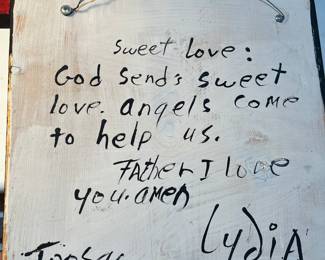 Sweet Love:
God Sends sweet
love. angels come
to help us.
FAther I love
you. amen
LyDiA